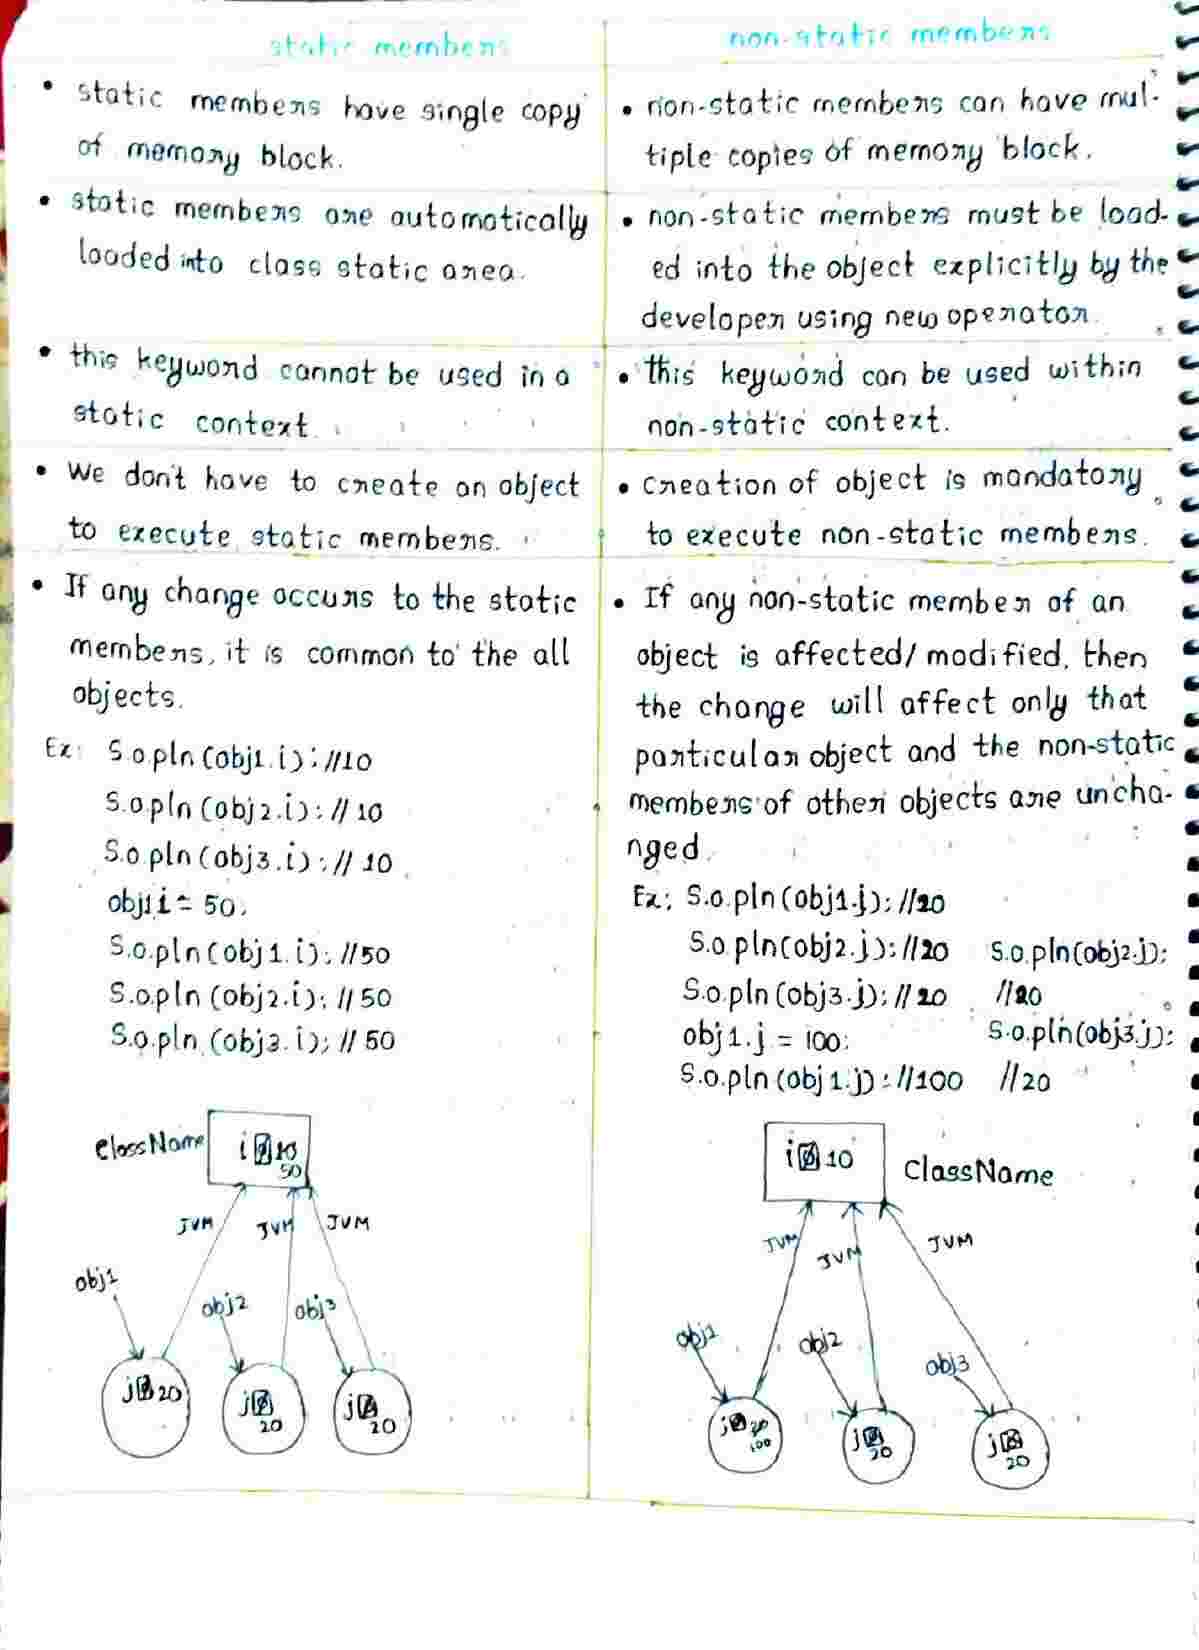 static members
static members have single copy
of memory block.
static members are automatically
loaded into class static area.
this keyword cannot be used in a
static context.
We don't have to create an object
to execute static members.
If any change occurs to the static
members, it is common to the all
objects.
Ex: S.o.pln(obj1.i); //10
S.o.pln(obj2.i); // 10
S.o.pln(obj3.i); // 10
obj1i = 50;
S.o.pln(obj1.i); //50
S.o.pln(obj2.i); //50
S.o.pln(obj3.i); // 50
ClassName
i 10
50
JVM JVM JVM
obj1
obj2 obj3
j 20
j
20
j
20
non-static members
non-static members can have mul-
tiple copies of memory block.
non-static members must be load-
ed into the object explicitly by the
developer using new operator.
this keyword can be used within
non-static context.
creation of object is mandatory
to execute non-static members.
If any non-static member of an
object is affected/modified, then
the change will affect only that
particular object and the non-static
members of other objects are uncha-
nged.
Ex: S.o.pln(obj1.j); //20
S.o.pln(obj2.j); //20
S.o.pln(obj3.j); //20
obj1.j = 100;
S.o.pln(obj1.j); //100
S.o.pln(obj2.j);
//20
S.o.pln(obj3.j);
//20
i 10
ClassName
JVM JVM JVM
obj1
obj2
obj3
j 20
100
j
20
j
20